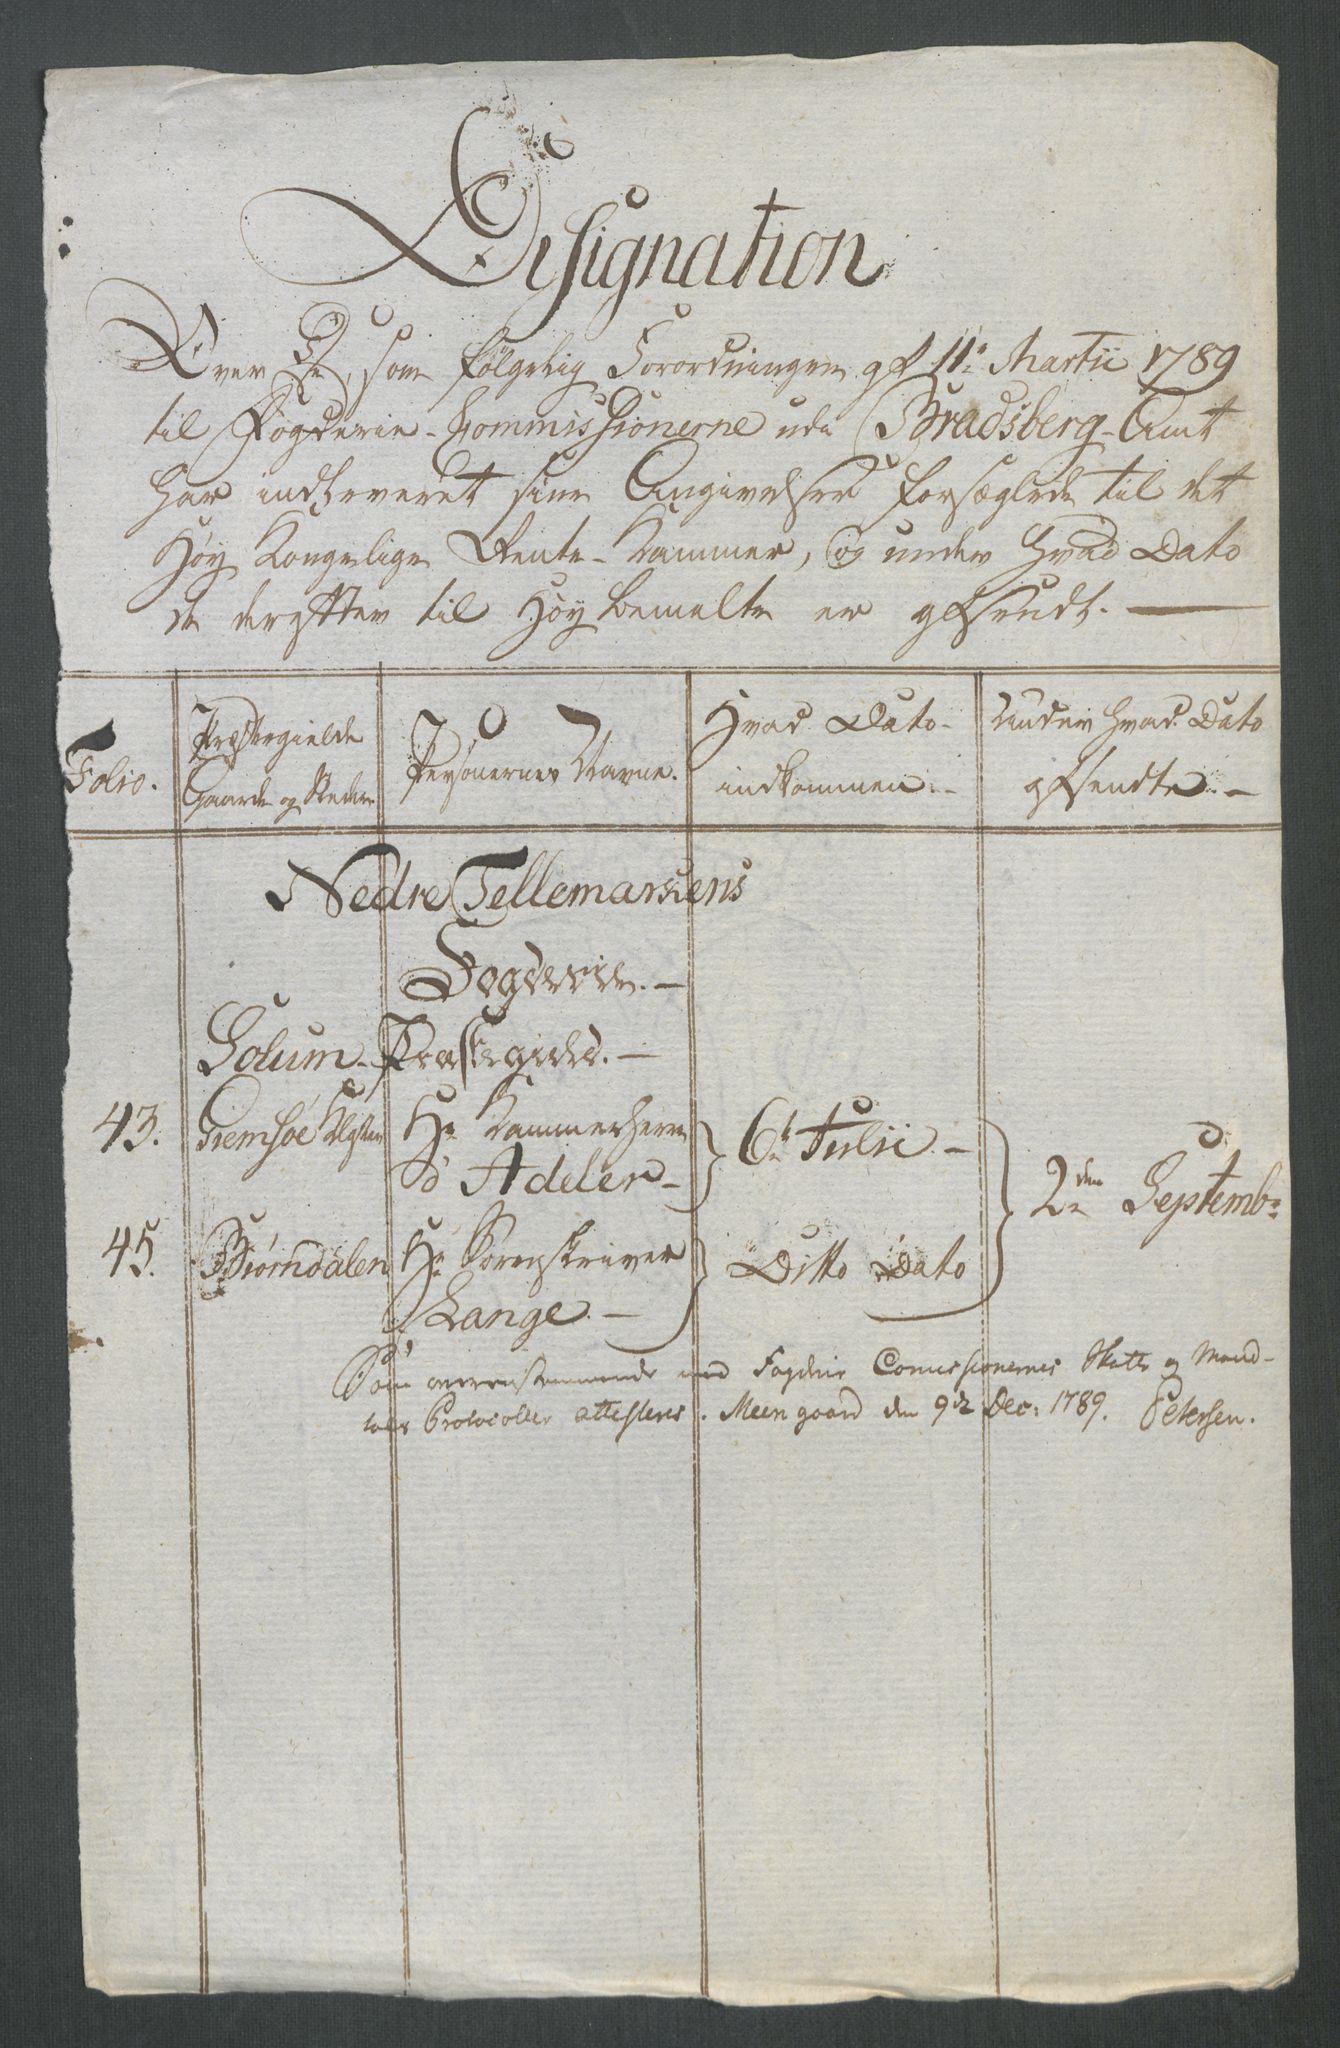 Designation
Over De, som følgelig Forordningen af 11te Martii 1789
til Fogderie-Commissionerne udi Bradsberg-Amt
har indleveret sine Angivelser forseglede til det
Høy Kongelige Rente-Kammer, og under hvad Dato
de derefter til Høybemelte er afsendt. —
Folio.
Præstegield
Gaarde og Steder
Personernes Navne.
Hvad Dato
indkommen. —
Under hvad Dato
afsendte. —
Nedre Tellemarkens
Fogderie. —
Solum-Præstegield. —
43. Giemsøe Kloster Hr Kammerherre 6te Julii. —
Adeler — 2den Septembr
45. Biørndalen Hr Sorenskriver Ditto Dato
Lange. —
Som overeenstemmende med Fogderie Comissionernes Skatte og Mand-
tals Protocoller attesteres. Meen gaard den 9de Dec: 1789. Petersen.